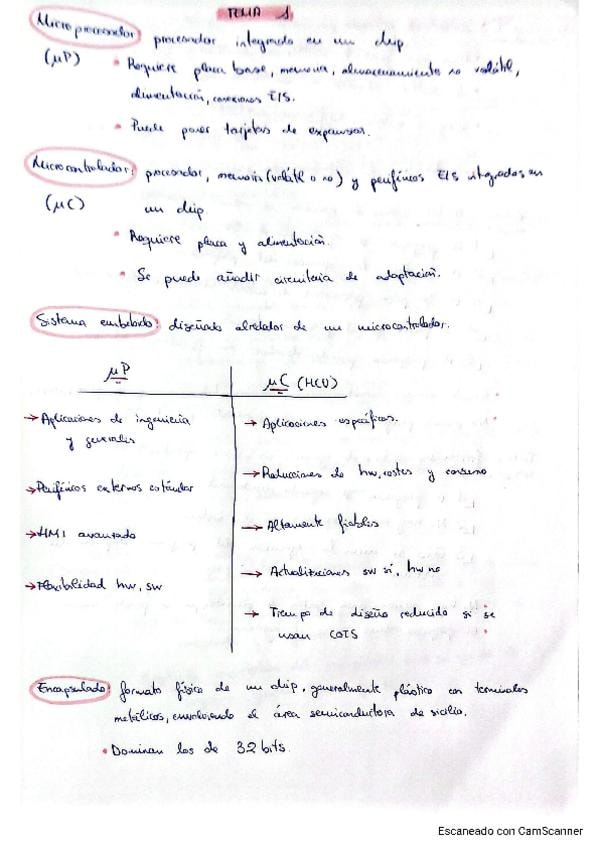 TEMA 1
Microprocesador: procesador integrado en un chip
(μP) • Requiere placa base, memoria, almacenamiento no volátil,
alimentación, conexiones E/S.
• Puede poseer tarjetas de expansión.
Microcontrolador: procesador, memoria (volátil o no) y periféricos E/S integrados en
(μC) un chip
• Requiere placa y alimentación.
• Se puede añadir circuitería de adaptación.
Sistema embebido: diseñado alrededor de un microcontrolador.
μP
μC (MCU)
→ Aplicaciones de ingeniería
y generales
→ Periféricos externos estándar
→ HMI avanzado
→ Flexibilidad hw, sw
→ Aplicaciones específicas.
→ Reducciones de hw, costes y consumo
→ Altamente fiables
→ Actualizaciones sw sí, hw no
→ Tiempo de diseño reducido si se
usan COTS
Encapsulado: formato físico de un chip, generalmente plástico con terminales
metálicos, envolviendo el área semiconductora de silicio.
• Dominan los de 32 bits.
Escaneado con CamScanner